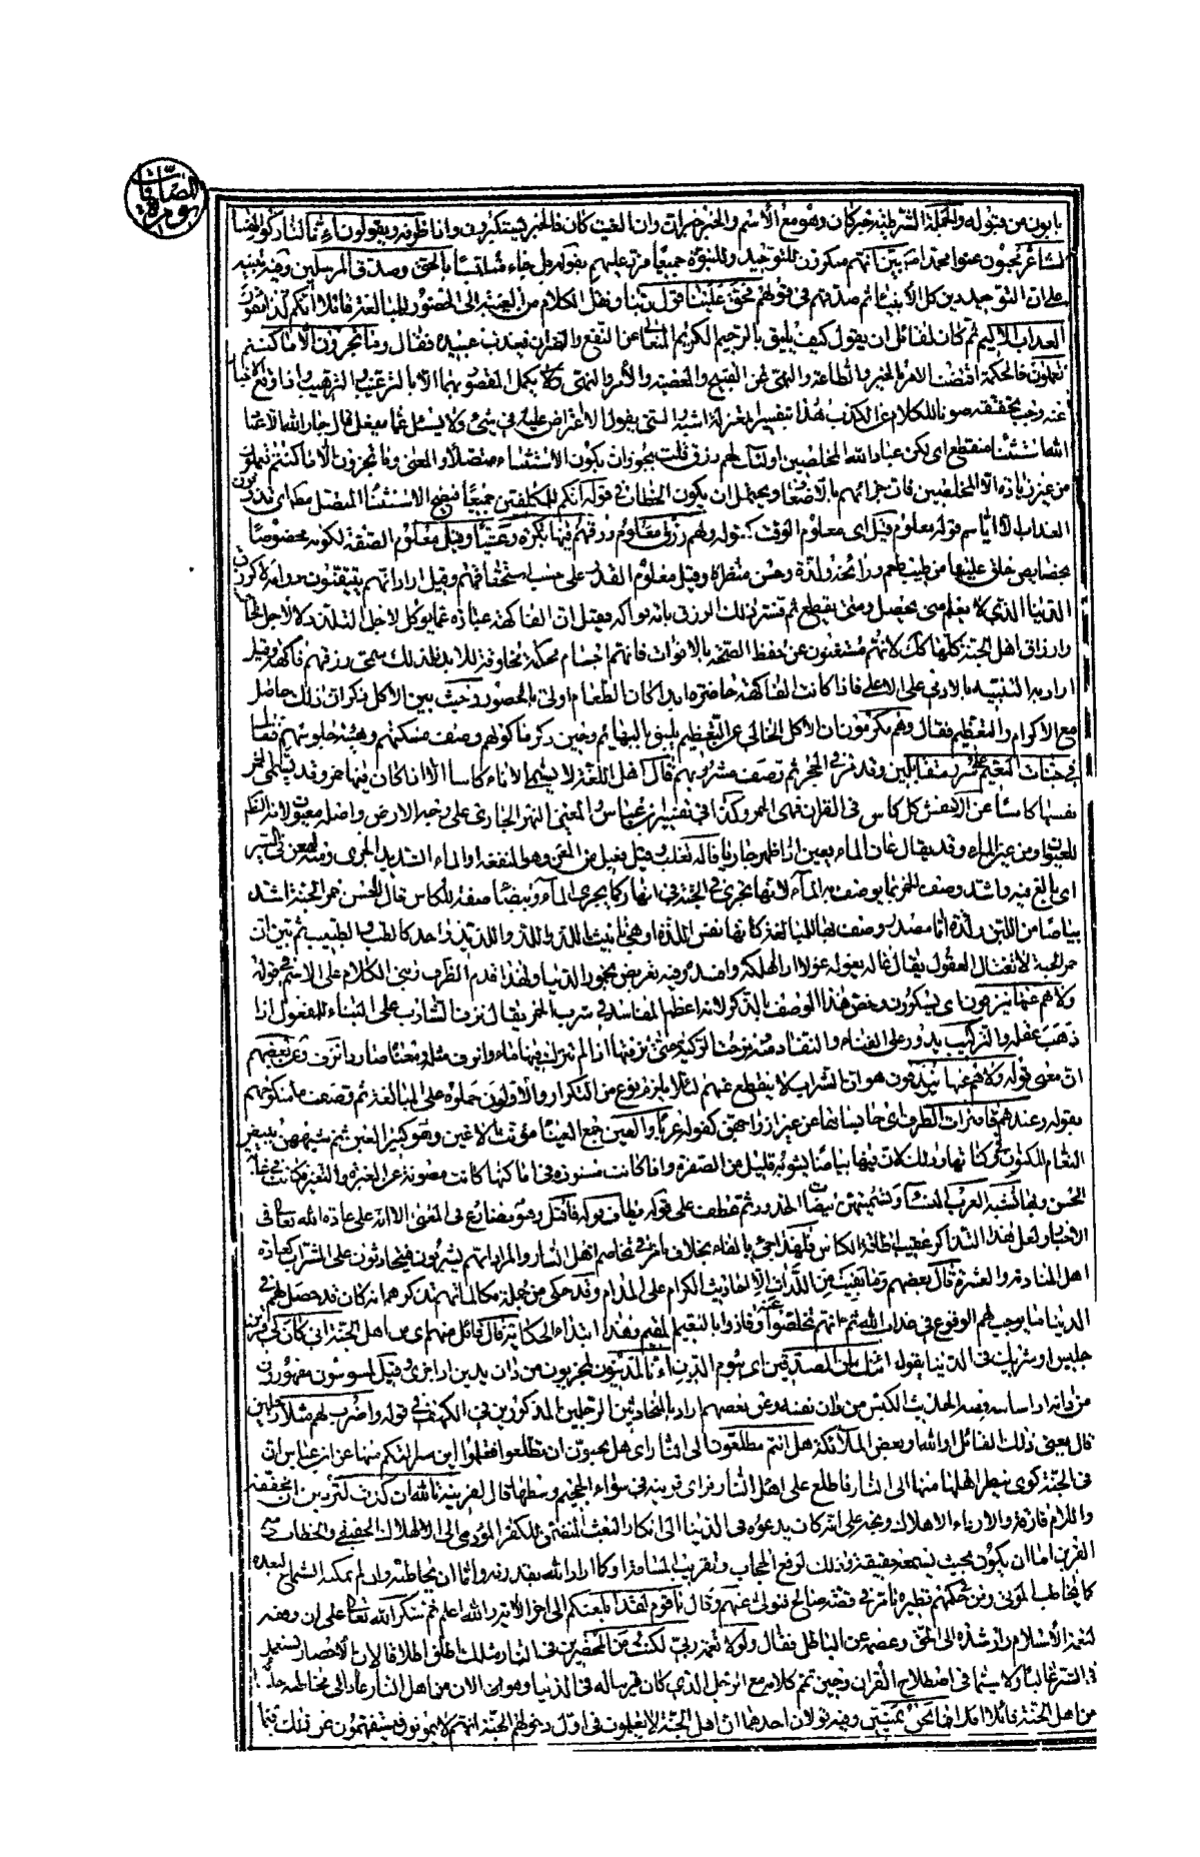 سورة الصافات
يابون من قبوله والجملة الشرطية خبر كان وهو مع الاسم والخبر خبر ان وان الغيت كان فالخبر يستكبرون وانا ظرفه ويقولون ائنا لتاركوا آلهتنا
لشاعر مجنون عنوا محمدا ثم بين انهم منكرون للتوحيد وللنبوة جميعا فرد عليهم بقوله بل جاء متلبسا بالحق وصدق المرسلين وفيه تنبيه
على ان التوحيد دين كل الانبياء ثم صدقهم في قولهم فحق علينا قول ربنا ونقل الكلام من الغيبة الى الحضور للمبالغة قائلا انكم لذائقوا
العذاب الاليم ثم كان لقائل ان يقول كيف يليق بالرحيم الكريم المتعالى عن النفع والضر ان يعذب عبيده فقال وما تجزون الا ما كنتم
تعملون فالحكمة اقتضت الامر بالخير والطاعة والنهى عن القبيح والمعصية والامر والنهى لا يكمل المقصود منهما الا بالترغيب والترهيب واذا وقع الاخبار
عنه وجب تحقيقه صونا للكلام عن الكذب هذا تفسير المعتزلة اشبه السنى يقول لا اعتراض عليه في شئ ولا يسئل عما يفعل قال جار الله الا عباد
الله استثناء منقطع اى لكن عباد الله المخلصين اولئك لهم رزق قلت يجوز ان يكون الاستثناء متصلا والمعنى وما تجزون الا ما كنتم تعملون
من غير زيادة الا المخلصين فان جزاءهم بالاضعاف ويحتمل ان يكون الخطاب في قوله انكم للمكلفين جميعا فيصح الاستثناء المتصل
العذاب لا قوله معلوم قيل اى معلوم الوقت كقوله ولهم رزقهم فيها بكرة وعشيا وقيل معلوم الصفة لكونه مخصوصا
بخصايص خلق عليها من طيب طعم ورائحة ولذة وحسن منظر وقيل معلوم القدر على حسب استحقاقهم وقيل اراد انهم يتيقنون دوامه لا كرزق
الدنيا الذى لا يعلم متى يحصل ومتى ينقطع ثم فسر ذلك الرزق بانه فواكه فقيل ان الفاكهة عبارة عما يؤكل لاجل التلذذ لا لاجل الحاجة
وارزاق اهل الجنة كلها كذلك لانهم مستغنون عن حفظ الصحة بالاقوات فانهم اجسام محكمة مخلوقة للابد فلذلك سمى رزقهم فاكهة وقيل
اراد به التنبيه بالادنى على الاعلى فاذا كانت الفاكهة حاضرة ابدا كان الطعام اولى بالحضور وحيث بين الاكل ذكر ان ذلك حاصل
مع الاكرام والتعظيم فقال وهم مكرمون لان الاكل الخالى عن التعظيم يليق بالبهائم وحين ذكر ماكولهم وصف مسكنهم وهيئة جلوسهم فقال
في جنات النعيم على سرر متقابلين وقد مر في الحجر ثم وصف مشروبهم قال اهل اللغة لا يسمى الاناء كاسا الا اذا كان فيها خمر وقد تسمى الخمر
نفسها كاسا عن الاخفش كل كاس في القران فهى الخمر وكذا في تفسير ابن عباس والمعين النهر الجارى على وجه الارض
للعيون او من عين الماء وقد يقال عان الماء يعين اذا ظهر جاريا قاله ثعلب وقيل فعيل من المعن وهو المنفعة او الماء الشديد الجرى ومنه امعن في السير
اى بالغ فيه واشتد وصف الخمر بما يوصف به الماء لانها تجرى في الجنة في انهار كما يجرى الماء وبيضاء صفة للكاس قال الحسن خمر الجنة اشد
بياضا من اللبن ولذة اما مصدر وصف بها للمبالغة كانها نفس اللذة او هى تانيث اللذ واللذ واللذيذ واحد كالطب والطبيب ثم بين ان
خمر الجنة لا تغتال العقول يقال غاله يغوله غولا اذا اهلكه وافسده وفيه تعريض بخمور الدنيا ولهذا قدم الظرف وبنى الكلام على الاسم في قوله
ولا هم عنها ينزفون اى يسكرون خص هذا الوصف بالذكر لانه اعظم المفاسد في شرب الخمر يقال نزف الشارب على البناء للمفعول اذا
ذهب عقله والتركيب يدور على الفناء والنفاد ومنه نزحت الركية حتى نزفتها اذا لم تترك فيها ماء وانزف مثله ومعناه صار ذا نزف وعن بعضهم
ان معنى قوله ولا هم عنها ينزفون هو ان الشراب لا ينقطع عنهم لئلا يلزم نوع من التكرار والاولون حملوه على المبالغة ثم وصف منكوحهم
بقوله وعندهم قاصرات الطرف اى حابساتها عن غير ازواجهن كقوله عربا والعين جمع العيناء مؤنث الاعين وهو كبير العين ثم شبههن ببيض
النعام المكنون في كنانها وذلك لان فيها بياضا يشوبه قليل من الصفرة واذا كانت مستورة في اماكنها كانت مصونة عن الغبرة والتغير فكانت في غاية
الحسن وبها تشبه العرب النساء وتسميهن بيضات الخدور ثم عطف على قوله يطاف قوله فاقبل وهو مضارع في المعنى الا انه على عادة الله تعالى في
الاخبار ولعل هذا التذاكر عقيب اطافة الكاس فلهذا جئ بالفاء بخلاف ما مر في تخاصم اهل النار والمراد انهم يشربون فيتحادثون على الشراب كعادة
اهل المنادمة والعشرة قال بعضهم وما بقيت من اللذات الا احاديث الكرام على المدام وقد حكى من جملة مكالماتهم تذكرهم انه كان قد حصل لهم في
الدنيا ما يوجب لهم الوقوع في عذاب الله ثم انهم تخلصوا عنه وفازوا بالنعيم المقيم وهذا ابتداء الحكاية قال قائل منهم اى من اهل الجنة انى كان لى قرين
جليس او شريك في الدنيا يقول ائنك لمن المصدقين اى بيوم الدين ائنا لمدينون لمجزيون من دان يدين اذا جزى وقيل لمسوسون مقهورون
من دانه اذا ساسه ومنه الحديث الكيس من دان نفسه وعن بعضهم اراد بالمتحادثين الرجلين المذكورين في الكهف في قوله واضرب لهم مثلا رجلين
قال يعنى ذلك القائل او الله او بعض الملائكة هل انتم مطلعون الى النار اى هل تحبون ان تطلعوا فتعلموا اين منزلتكم منها عن ابن عباس ان
في الجنة كوى ينظر اهلها منها الى النار فاطلع على اهل النار فراى قرينه في سواء الجحيم وسطها قال لقرينه تالله ان كدت لتردين ان مخففة
واللام فارقة والارداء الاهلاك وبخه على انه كان يدعوه في الدنيا الى انكار البعث المفضى للكفر المؤدى الى الاهلاك الحقيقى والخطاب مع
القرين اما ان يكون بحيث يسمعه حقيقة وذلك لرفع الحجاب وتقريب المسافة او كما اراد الله بقدرته واما ان يخاطبه وان لم يمكنه السماع لبعده
كما يخاطب الموتى ومن حكمهم نظيره ما مر في قصة صالح فتولى عنهم وقال يا قوم لقد ابلغتكم الى اخر الاية والله اعلم ثم شكر الله تعالى على ان وهبه
نعمة الاسلام وارشده الى الحق وعصمه عن الباطل فقال ولولا نعمة ربى لكنت من المحضرين في النار مثلك اطلق اطلاقا لان الاحضار يستعمل
في الشر غالبا ولا سيما في اصطلاح القران وحين تم كلامه مع الرجل الذى كان قرينا له في الدنيا وهو الان من اهل النار عاد الى مخاطبة جلسائه
من اهل الجنة قائلا افما نحن بميتين وفيه قولان احدهما ان اهل الجنة لا يعلمون في اول دخولهم الجنة انهم لا يموتون فيستفهمون عن ذلك فيما